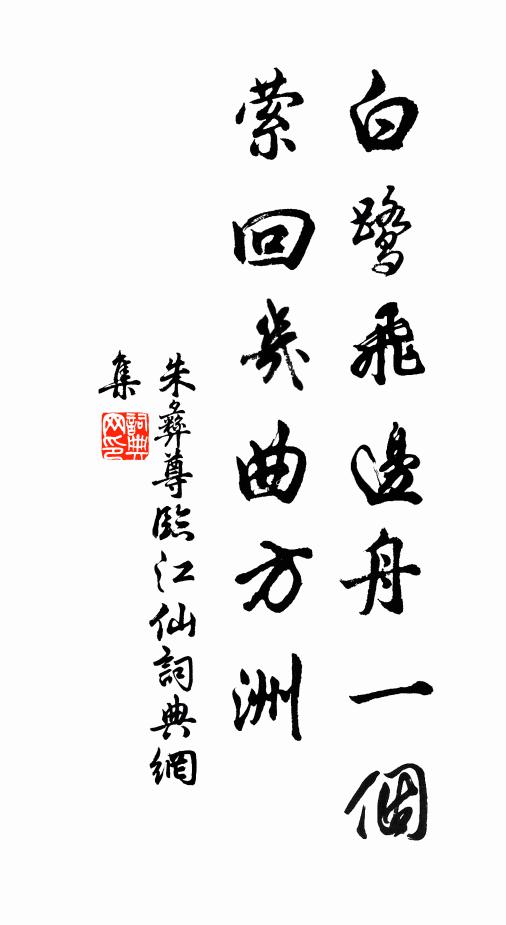 白鹭飛邊舟一個
萦回幾曲方洲
朱彝尊臨江仙詞典網
集
詞典网印